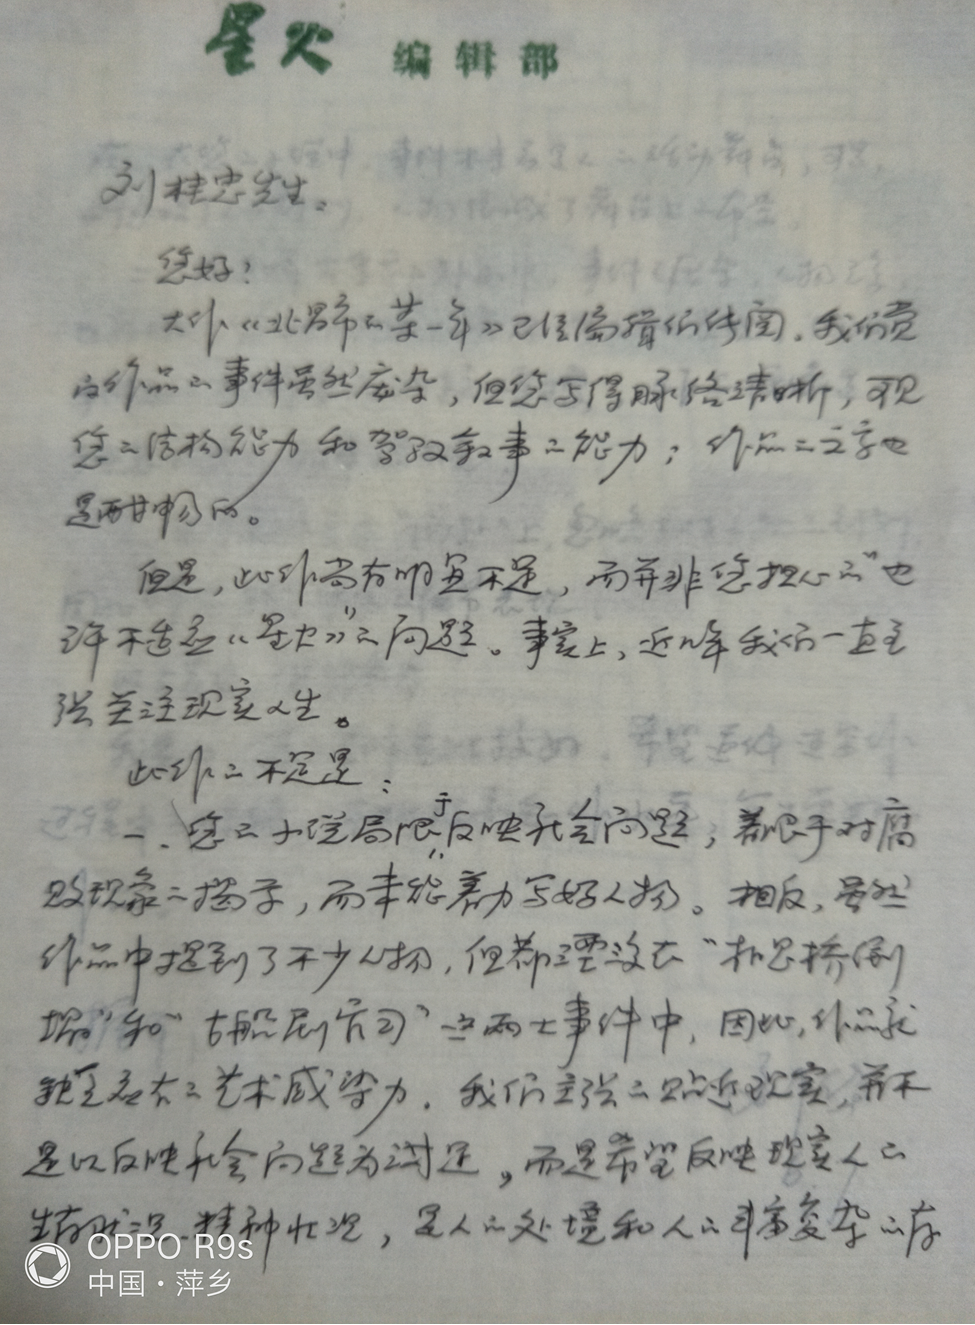 星火 编辑部
刘桂忠先生。
您好!
大作《北昌市的某一年》已经编辑们传阅。我们觉
的作品的事件虽然庞杂,但您写得脉络清晰,可见
您的结构能力和驾驭叙事的能力;作品的文字也
是酣畅的。
但是,此作尚有明显不足,而并非您担心的“也
许不适应《星火》”的问题。事实上,近几年我们一直主
张关注现实人生。
此作的不足是:
一、您的小说局限于反映社会问题,着眼于对腐
败现象的揭示,而未能着力写好人物。相反,虽然
作品中提到了不少人物,但都湮没在“相思桥倒
塌”和“古船剧官司”这两大事件中,因此,作品就
缺乏应有的艺术感染力。我们主张的贴近现实,并不
是以反映社会问题为满足,而是希望反映现实人的
生存状况、精神状况,是人的处境和人的丰富复杂的存
OPPO R9s
中国·萍乡